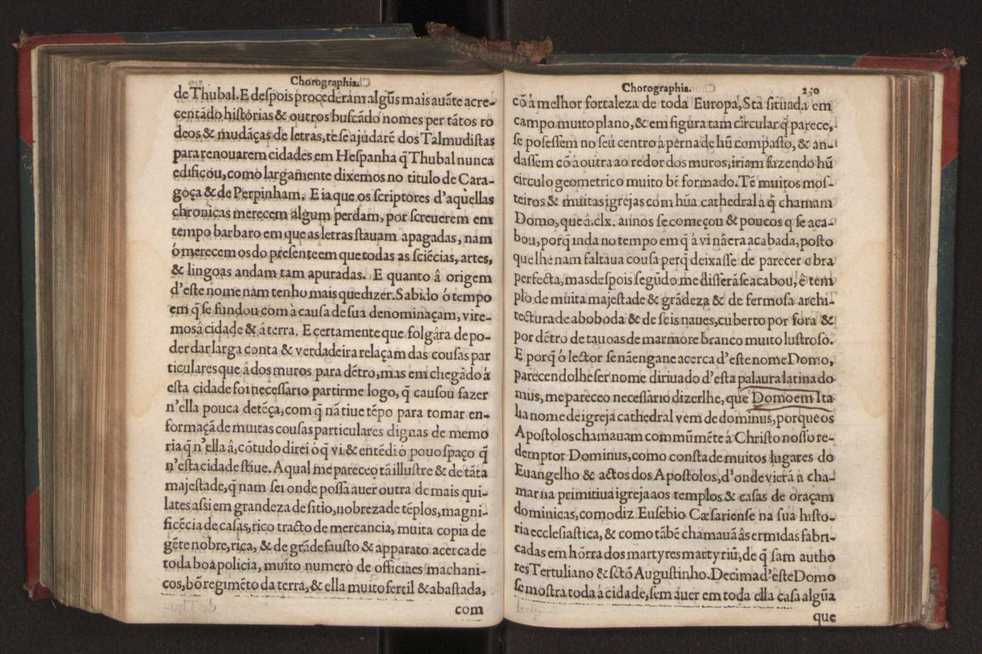 Chorographia.
de Thubal. E despois procederam algũs mais auãte acre-
centãdo histórias & outros buscãdo nomes per tãtos ro
deos, & mudãças de letras, té se ajudarẽ dos Talmudistas
para renouarem cidades em Hespanha q̃ Thubal nunca
edificou, como largamente dixemos no titulo de Cara-
goça & de Perpinham. E ia que os scriptores d'aquellas
chronicas merecem algum perdam, por screuerem em
tempo barbaro em que as letras stauam apagadas, nam
ó merecem os do presente em que todas as sciẽcias, artes,
& lingoas andam tam apuradas. E quanto â origem
d'este nome nam tenho mais que dizer. Sabido ó tempo
em q̃ se fundou com à causa de sua denominaçam, vire-
mos á cidade & á terra. E certamente que folgára de po-
der dar larga conta & verdadeira relaçam das cousas par
ticulares que â dos muros para dẽtro, mas em chegãdo à
esta cidade foi necessario partirme logo, q̃ causou fazer
n'ella pouca detẽça, com q̃ nã tiue tẽpo para tomar en-
formaçã de muitas cousas particulares dignas de memo
ria q̃ n'ella â, cõtudo direi ó q̃ vi & entẽdi ó pouo spaço q̃
n'esta cidade stiue. A qual me pareceo tã illustre & de tãta
majestade, q̃ nam sei onde possa auer outra de mais qui-
lates assi em grandeza de sitio, nobreza de tẽplos, magni-
ficẽcia de casas, rico tracto de mercancia, muita copia de
gẽte nobre, rica, & de grãde fausto & apparato acerca de
toda boa policia, muito numero de officiaes machani-
cos, bõ regimẽto da terra, & ella muito fertil & abastada,
com
Chorographia. 250
cõ à melhor fortaleza de toda Europa, Stâ situada em
campo muito plano, & em figura tam circular q̃ parece,
se posessẽm no seu centro à perna de hũ compasso, & an-
dassẽm cõ à outra ao redor dos muros, iriam fazendo hũ
circulo geometrico muito bẽ formado. Tẽ muitos mos-
teiros & muitas igrejas com hũa cathedral à q̃ chamam
Domo, que â .clx. annos se começou & poucos q̃ se aca-
bou, porq̃ inda no tempo em q̃ à vi nã era acabada, posto
que lhe nam faltaua cousa perq̃ deixasse de parecer obra
perfecta, mas despois segũdo me disserã se acabou, ẽ tem
plo de muita majestade & grãdeza & de fermosa archi-
tectura de aboboda & de seis naues, cuberto por fora &
por dẽtro de tauoas de marmore branco muito lustroso.
E porq̃ ò lector se nã engane acerca d'este nome Domo,
parecendolhe ser nome diriuado d'esta palaura latina do-
mus, me pareceo necessário dizerlhe, que Domo em Ita
lia nome de igreja cathedral vem de dominus, porque os
Apostolos chamauam commũmẽte â Christo nosso re-
demptor Dominus, como consta de muitos lugares do
Euangelho & actos dos Apostolos, d'onde vierã à cha-
mar na primitiua igreja aos templos & casas de oraçam
dominicas, como diz Eusebio Cæsariense na sua histo-
ria ecclesiastica, & como tãbẽ chamauã às ermidas fabri-
cadas em hõrra dos martyres martyriũ, de q̃ sam autho
res Tertuliano & sctõ Augustinho. De cima d'este Domo
se mostra toda à cidade, sem áuer em toda ella casa algũa
que